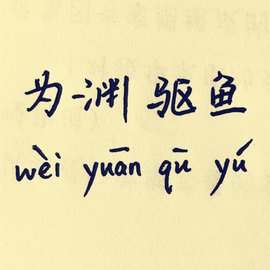 为渊驱鱼
wèi yuān qū yú